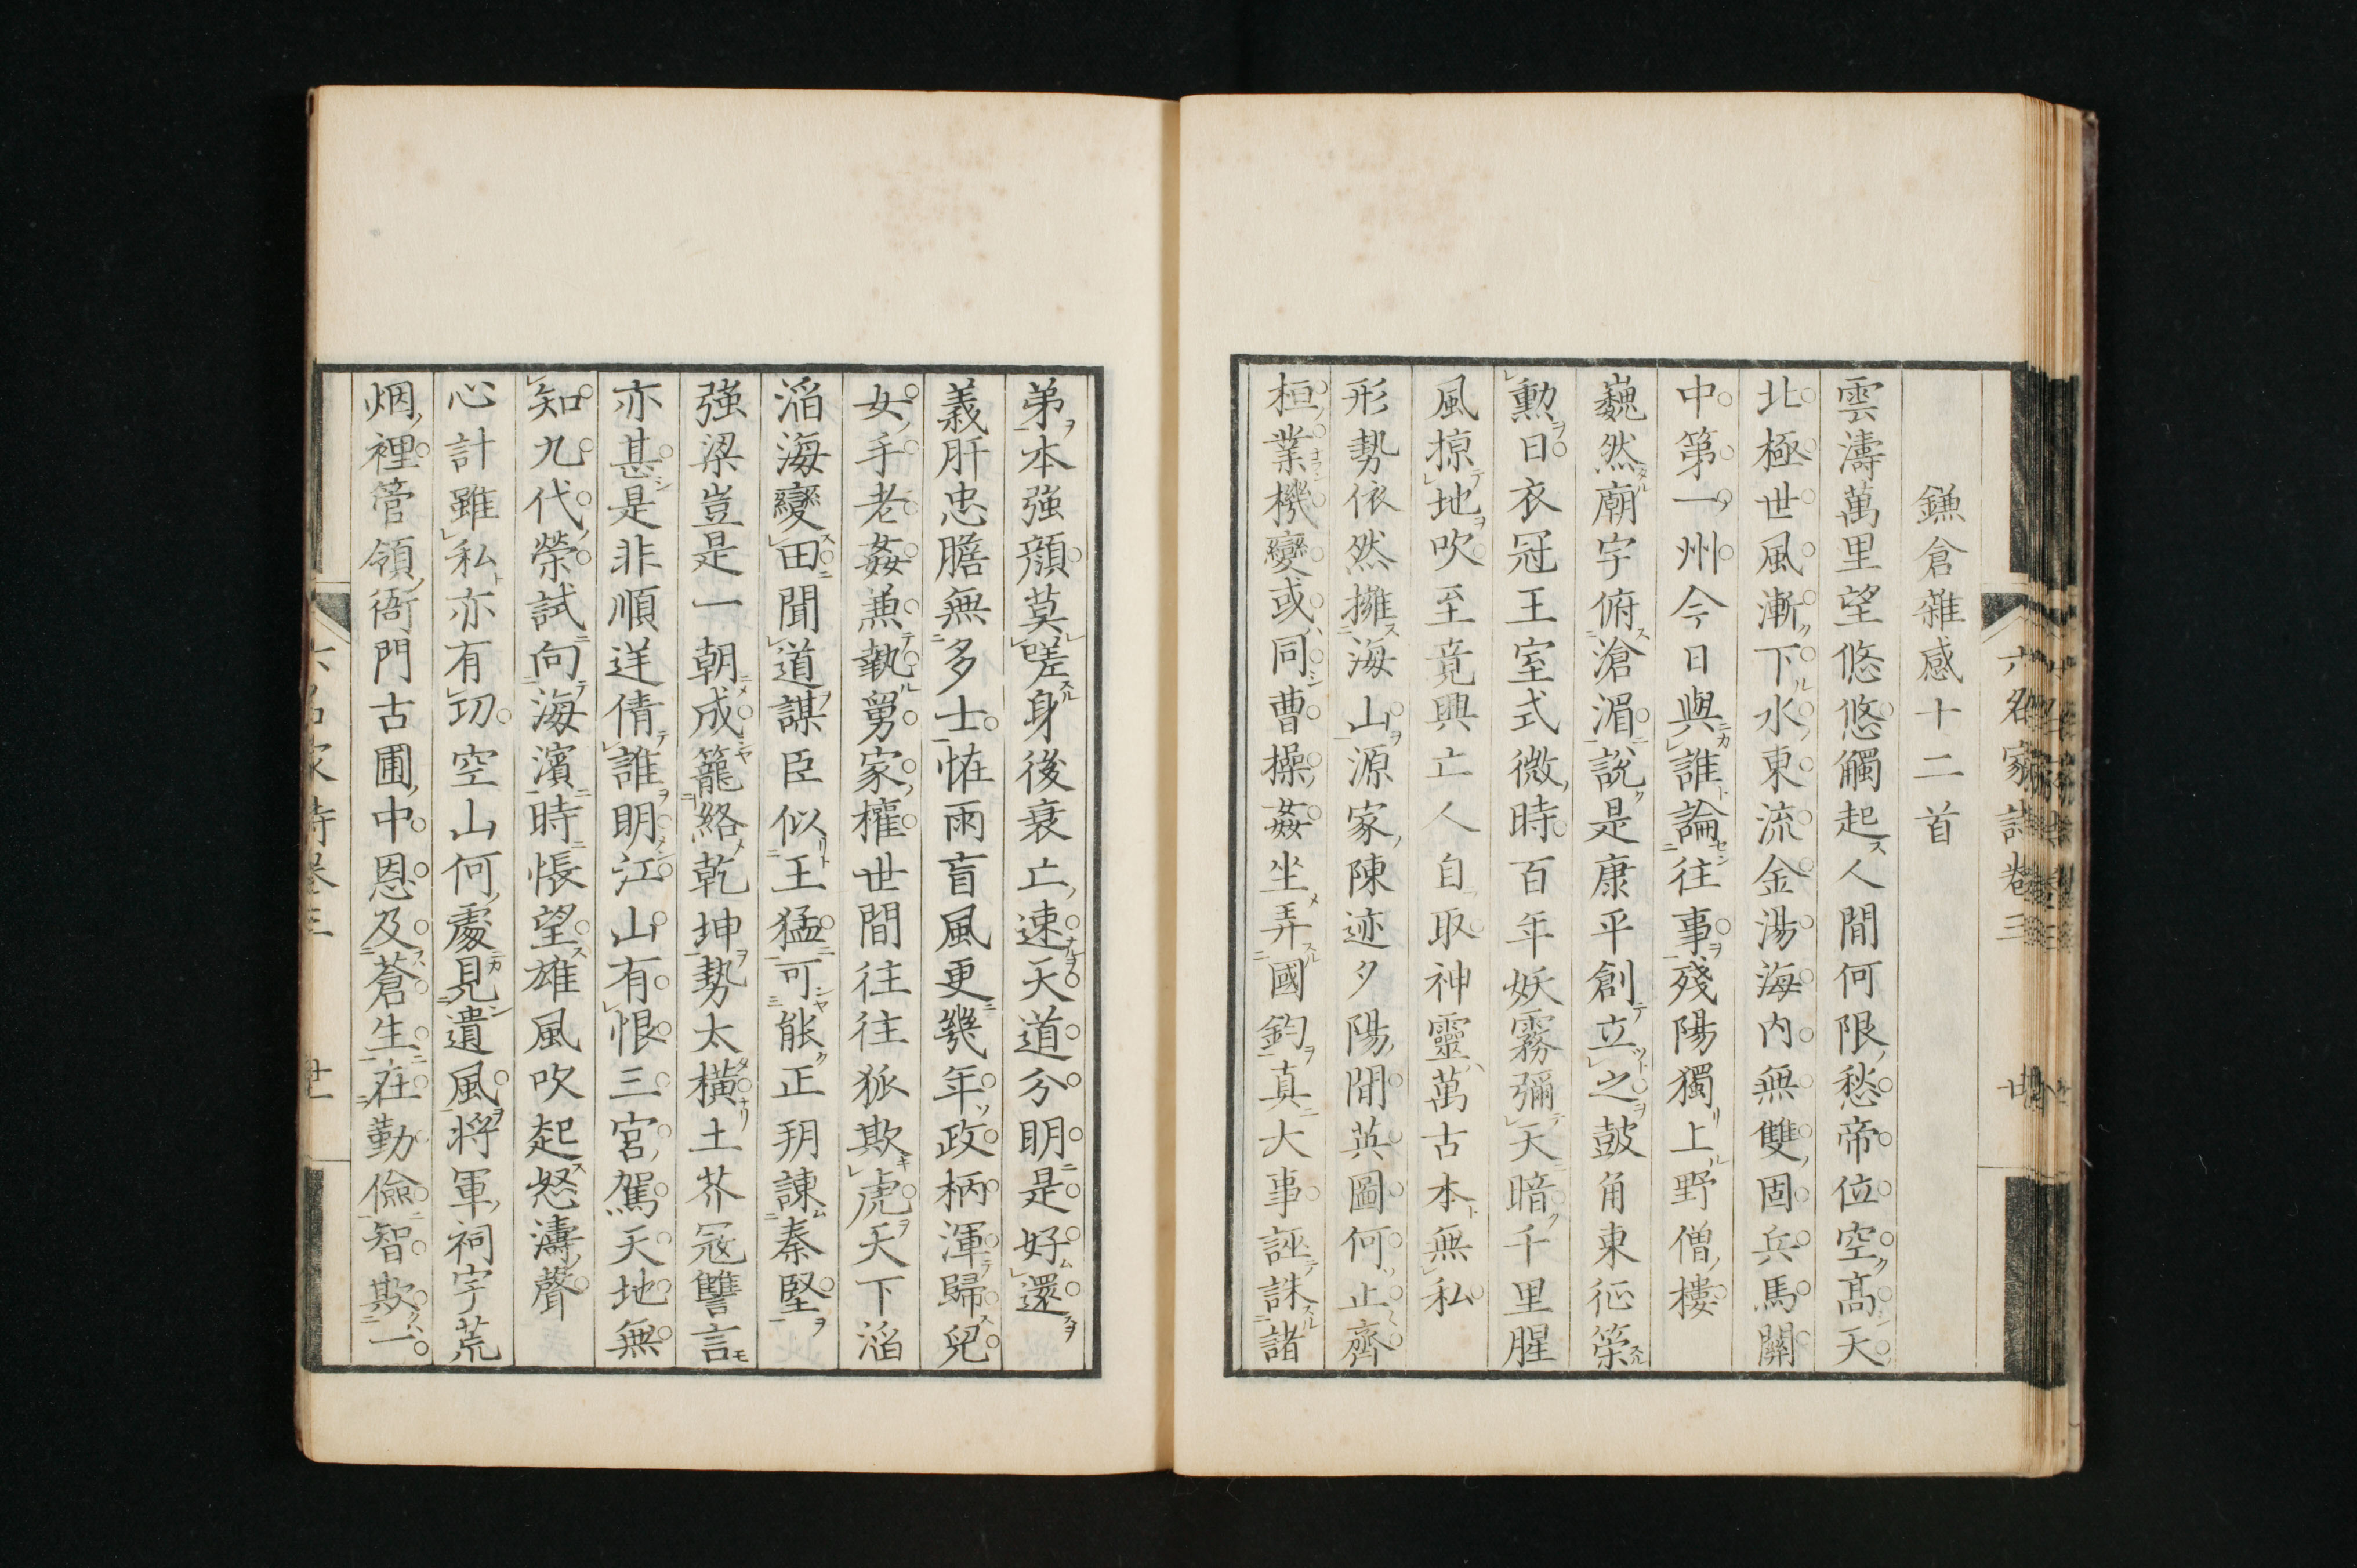 鎌倉雜感十二首
雲濤萬里望悠悠觸起人間何限愁帝位空高天
北極世風漸下水東流金湯海内無雙固兵馬關
中第一州今日與誰論往事殘陽獨上野僧樓
巍然廟宇俯滄湄說是康平創立之鼓角東征策
勲日衣冠王室式微時百年妖霧彌天暗千里腥
風掠地吹至竟興亡人自取神靈萬古本無私
形勢依然擁海山源家陳迹夕陽間英圖何止齊
桓業機變或同曹操姦坐弄國鈞真大事誣誅諸
弟本強顏莫嗟身後衰亡速天道分明是好還
義肝忠膽無多士怪雨盲風更幾年政柄渾歸兒
女手老姦兼執舅家權世間往往狐欺虎天下滔
滔海變田聞道謀臣似王猛可能正朔諫秦堅
強梁豈是一朝成籠絡乾坤勢太橫土芥冦讐言
亦甚是非順逆倩誰明江山有恨三宮駕天地無
知九代榮試向海濱時悵望雄風吹起怒濤聲
心計雖私亦有功空山何處見遺風將軍祠宇荒
烟裡管領衙門古圃中恩及蒼生在勤儉智欺一
六名家詩卷三
六名家詩卷三
丗